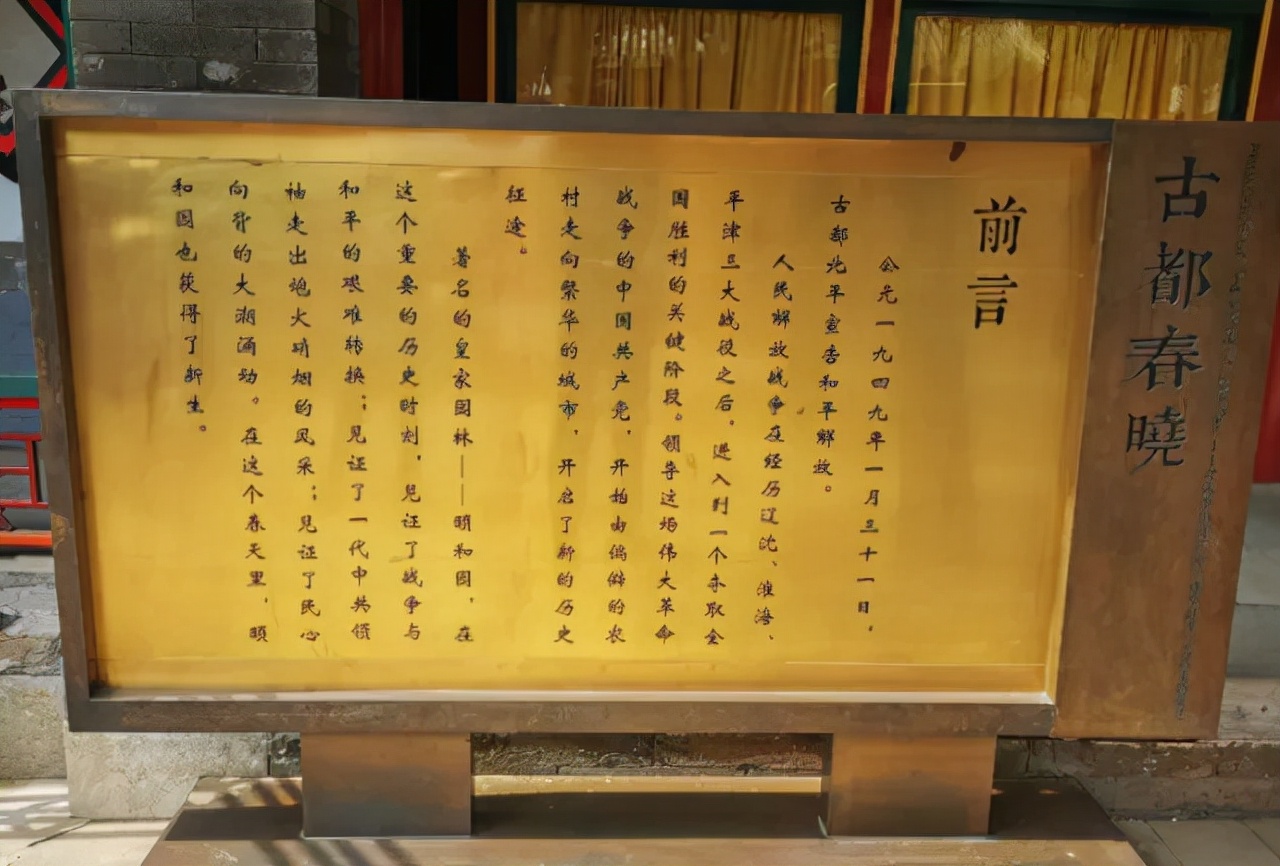 古都春曉
前言
公元一九四九年一月三十一日，
古都北平宣告和平解放。
人民解放战争在经历辽沈、淮海、
平津三大战役之后。进入到一个夺取全
国胜利的关键阶段。领导这场伟大革命
战争的中国共产党，开始由偏僻的农
村走向繁华的城市，开启了新的历史
征途。
著名的皇家园林——颐和园，在
这个重要的历史时刻，见证了战争与
和平的艰难转换；见证了一代中共领
袖走出炮火硝烟的风采；见证了民心
向升的大潮涌动。在这个春天里，颐
和园也获得了新生。